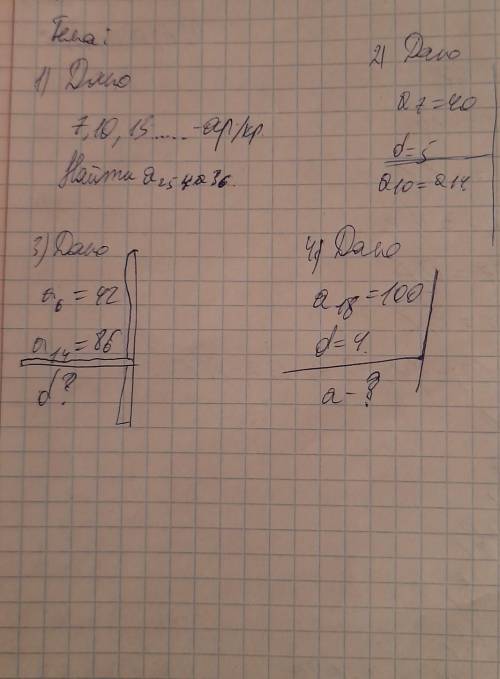 Тема:
1) Дано
7, 10, 15...... -ар/пр
Найти a25 и a36.
2) Дано
a7 = 40
d = 5
a10 = a14.
3) Дано
a6 = 42
a14 = 86
d?
4) Дано
a18 = 100
d = 4.
a - ?